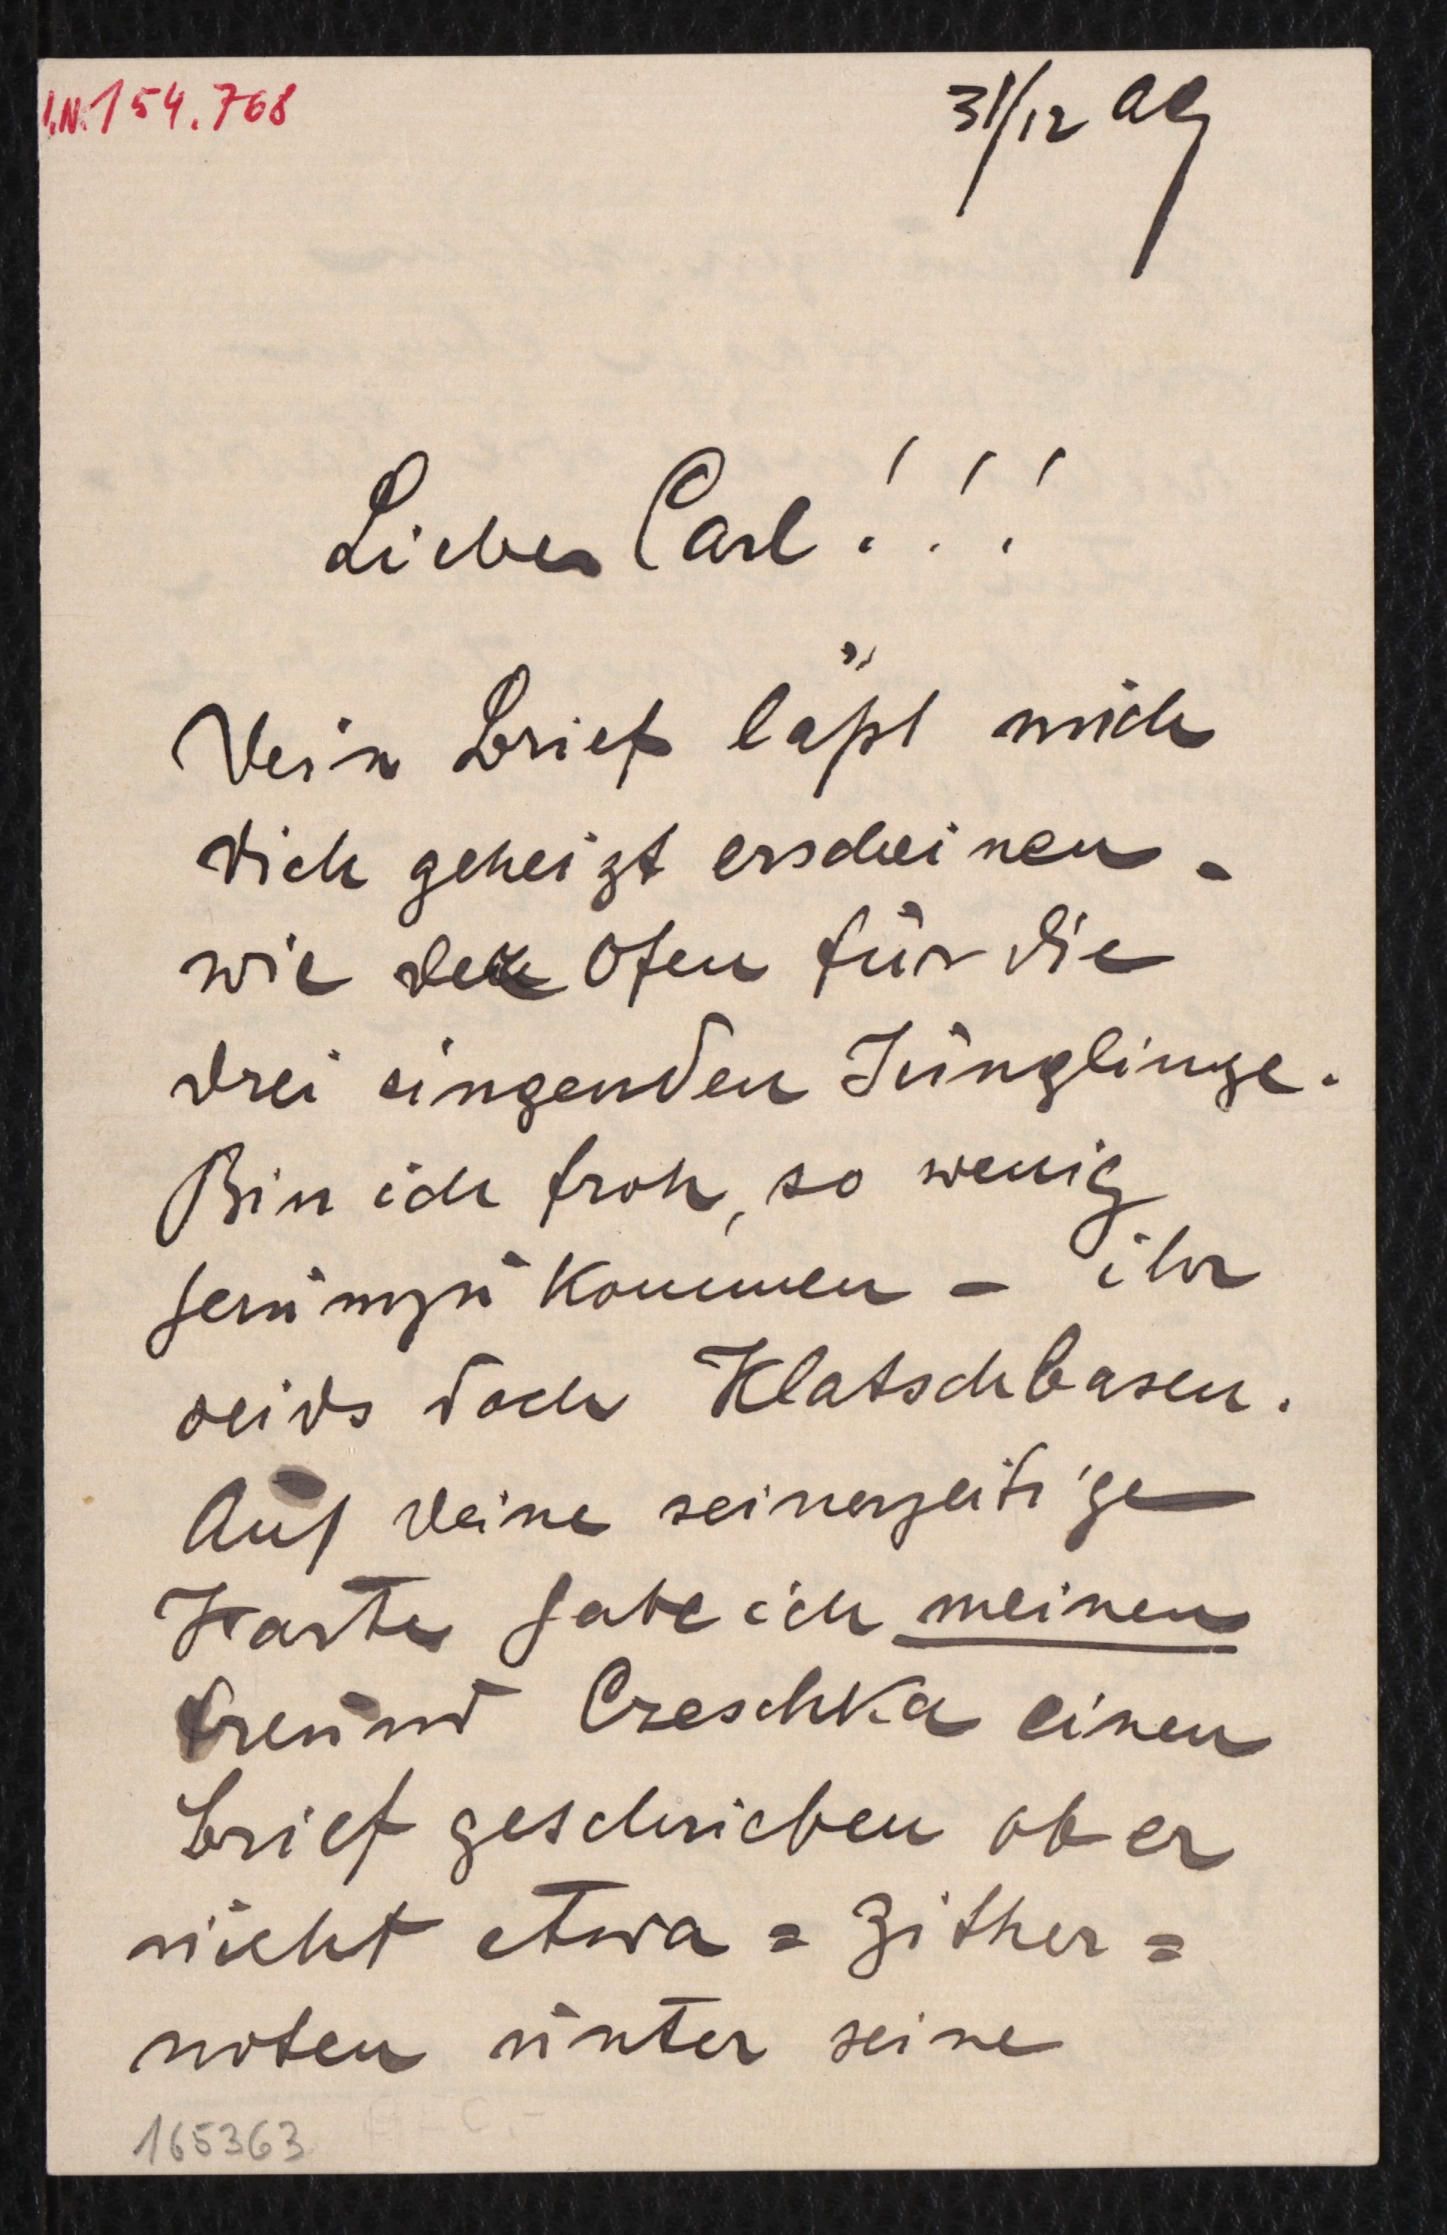 I.N. 154.768
31/12 09
Lieber Carl!!!
Dein Brief läßt mich
dich geheizt erscheinen -
wie der Ofen für die
drei singenden Jünglinge.
Bin ich froh, so wenig
herumzukommen - ihr
seids doch Klatschbasen.
Auf deine seinerzeitige
Karte habe ich meinen
Freund Czeschka einen
Brief geschrieben ob er
nicht etwa = Zither =
noten unter seine
165363